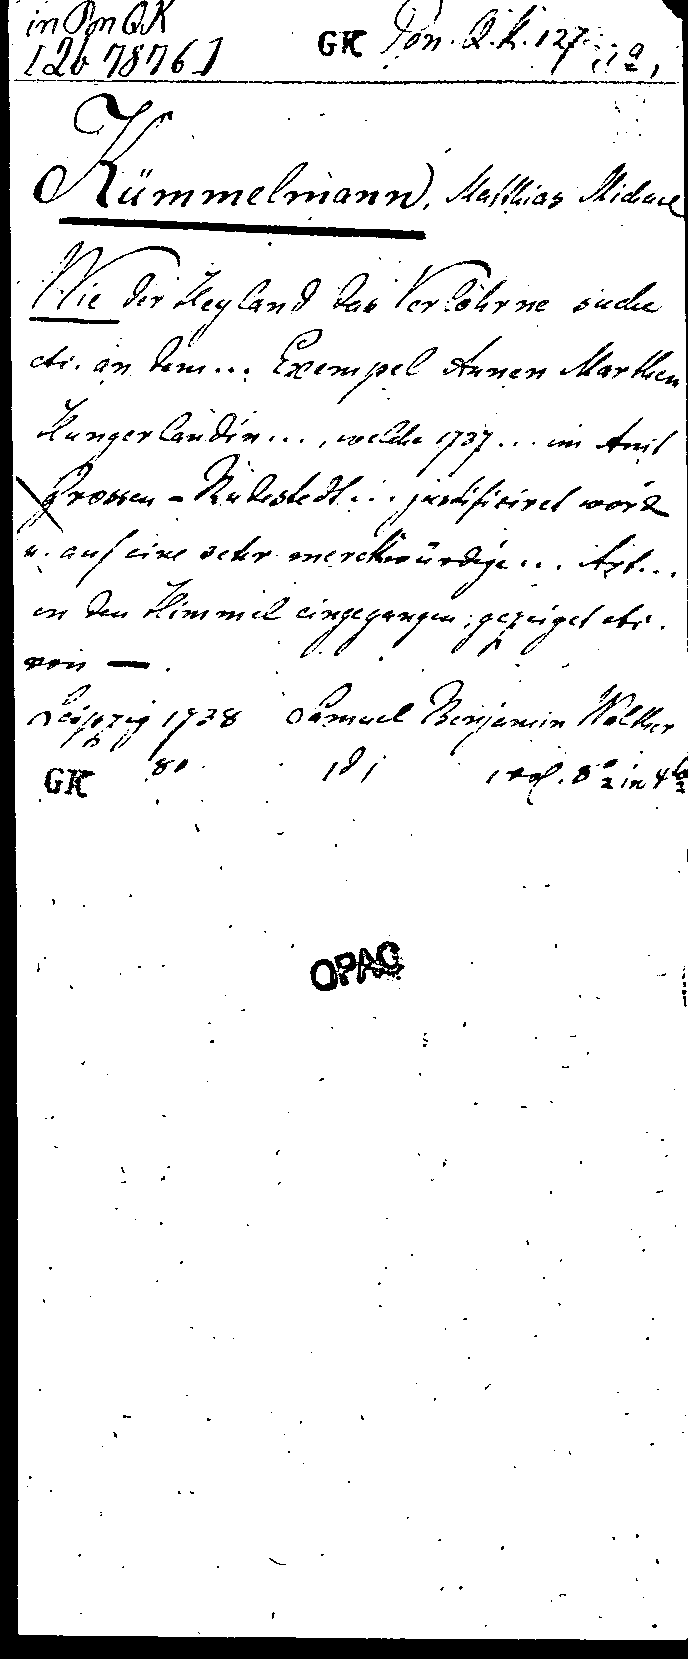 in Pon QK
[26 7876]
GK Pon. Q.K. 127, a,
Kümmelmann, Matthias Michael
Wie der Heyland das Verlohrne suche
etc. an dem... Exempel Annen Marthen
Hungerlandin..., welche 1737... im Amt
Grossen-Rudestedt... justificiret word
u. auf eine sehr merckwürdige... Art...
in den Himmel eingegangen, gezeiget etc.
von — .
Leipzig 1738 Samuel Benjamin Walther
GK 80 181 1 vol. 8° in 4°
OPAC